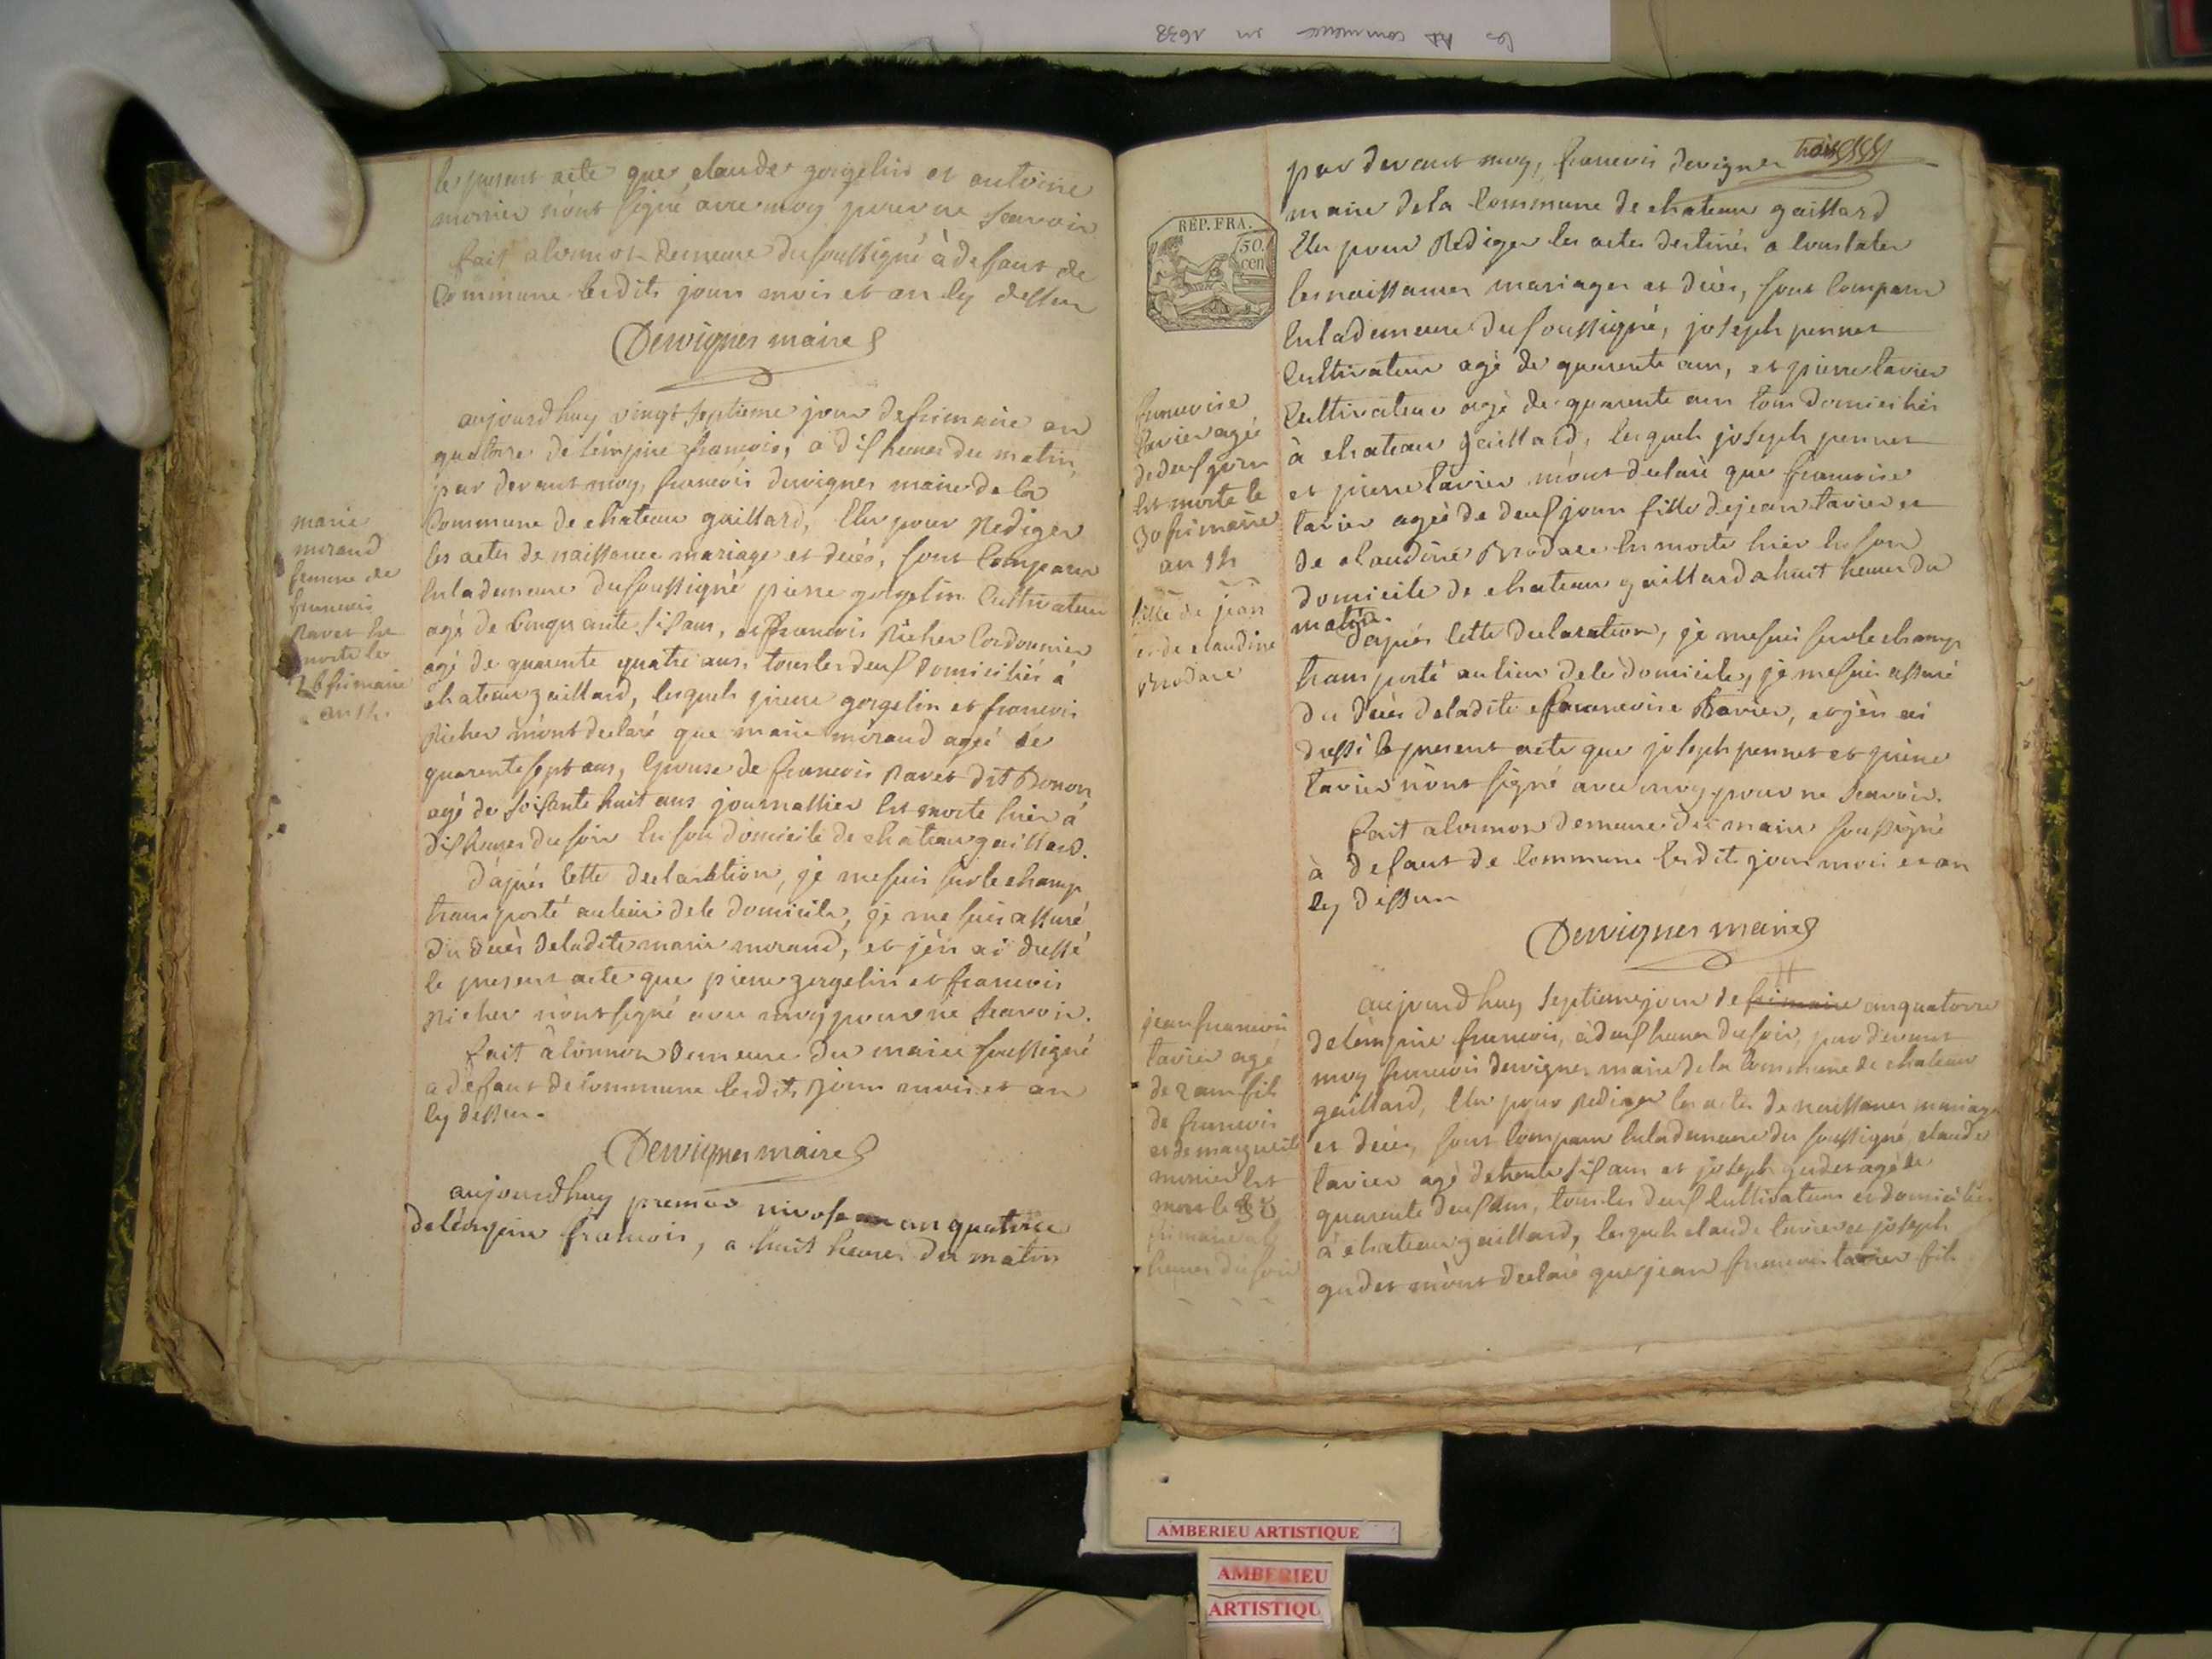 les commence en 1638
le present acte que claude gorgelin et antoine
monier n'ont signé avec moy pour ne scavoir
fait alonnot demeure du soussigné à defaut de
commune lesdits jours mois et an cy dessu
Dervignes maire
aujourdhuy vingt septieme jour defrimaire an
quatorze de l'empire francois, a dix heures du matin
par devant moy, francois dervignes maire de la
Commune de chateau gaillard, Elu pour Rediger
les actes de naissance mariage et decés, sont Comparu
En la demeure du soussigné pierre gorgelin Cultivateur
agé de Cinquante six ans, et francois Richer Cordonnier
agé de quarente quatre ans, tous les deux domiciliés à
chateau gaillard, lesquels pierre gorgelin et francois
Richer m'ont declaré que marie morand ageé de
quarente sept ans, Epouse de francois Ravet dit Bonon
agé de soisante huit ans journallier Est morte hier à
dix heures du soir En son domicile de chateau gaillard.
d'aprés Cette declaration, je me suis sur le champ
transporté au lieu de le domicile, je me suis assuré
du decès de ladite marie morand, et j'en ai dressé
le present acte que pierre gorgelin et francois
Richer n'ont signé avec moy pour ne scavoir.
fait àlonnot demeure du maire soussigné
a defaut de Commune lesdits jours mois et an
Cy dessu.
Dervignes maire
aujourdhuy premier nivose an quatorze
de l'empire francois, a huit heures du matin
marie
morand
femme de
francois
Ravet Est
morte le
26 frimaire
an 14.
trois
par devant moy, francois dervignes
maire dela Commune de chateau gaillard
Elu pour Rediger les actes destinés a Constater
les naissances mariages et decés, sont Comparu
En la demeure du soussigné, joseph pennet
Cultivateur agé de quarente ans, et pierre tavier
Cultivateur agé de quarente ans tous domiciliés
à chateau gaillard, lesquels joseph pennet
et pierre tavier m'ont declaré que francoise
tavier ageé de deux jours fille de jean tavier et
de claudine Brodare Est morte hier En son
domicile de chateau gaillard a huit heures du
matin.
d'aprés Cette declaration, je me suis sur le champ
transporté au lieu dele domicile, je me suis assuré
du decés de ladite francoise tavier, et j'en ai
dressé le present acte que joseph pennet et pierre
tavier n'ont signé avec moy pour ne scavoir.
fait alonnot demeure du maire soussigné
à defaut de Commune lesdits jours mois et an
Cy dessu
Dervignes maire
aujourdhuy septieme jour de frimaire an quatorze
de lempire francois, à deux heures du soir, par devant
moy francois dervignes maire de la Commune de chateau
gaillard, Elu pour Rediger les actes de naissance mariage
et decés, sont Comparu En la demeure du soussigné claude
tavier agé de trente six ans et joseph gudet agé de
quarente deux ans, tous les deux Cultivateurs et domiciliés
à chateau gaillard, lesquels claude tavier et joseph
gudet m'ont declaré que jean francois tavier fils
RÉP. FRA.
50.
cen
francoise
tavier ageé
de deux jours
Est morte le
30 frimaire
an 14
fille de jean
et de claudine
Brodare
jean francois
tavier agé
de 2 ans fils
de francois
et de marguerite
monier Est
mort le
frimaire a 6
heures du soir
AMBERIEU ARTISTIQUE
AMBERIEU
ARTISTIQU